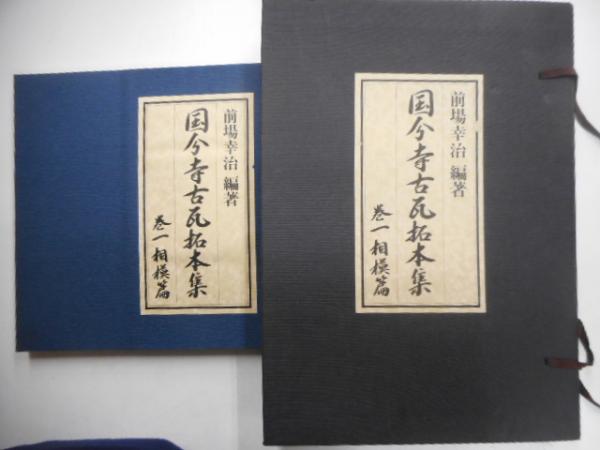 前場幸治 編著
国分寺古瓦拓本集
巻一 相模篇
前場幸治 編著
国分寺古瓦拓本集
巻一 相模篇